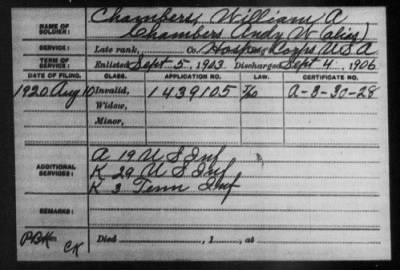 Chambers, William A
NAME OF SOLDIER: Chambers Andy W (alies)
SERVICE: Late rank, Co. Hosp Corps U S A
TERM OF SERVICE: Enlisted Sept 5, 1903 Discharged Sept 4, 1906
DATE OF FILING. CLASS. APPLICATION NO. LAW. CERTIFICATE NO.
1920 Aug 10 Invalid, 1439105 A-8-30-28
Widow,
Minor,
ADDITIONAL SERVICES: A 19 U S Inf
K 29 U S Inf
K 3 Tenn Inf
REMARKS:
CK Died, 1, at